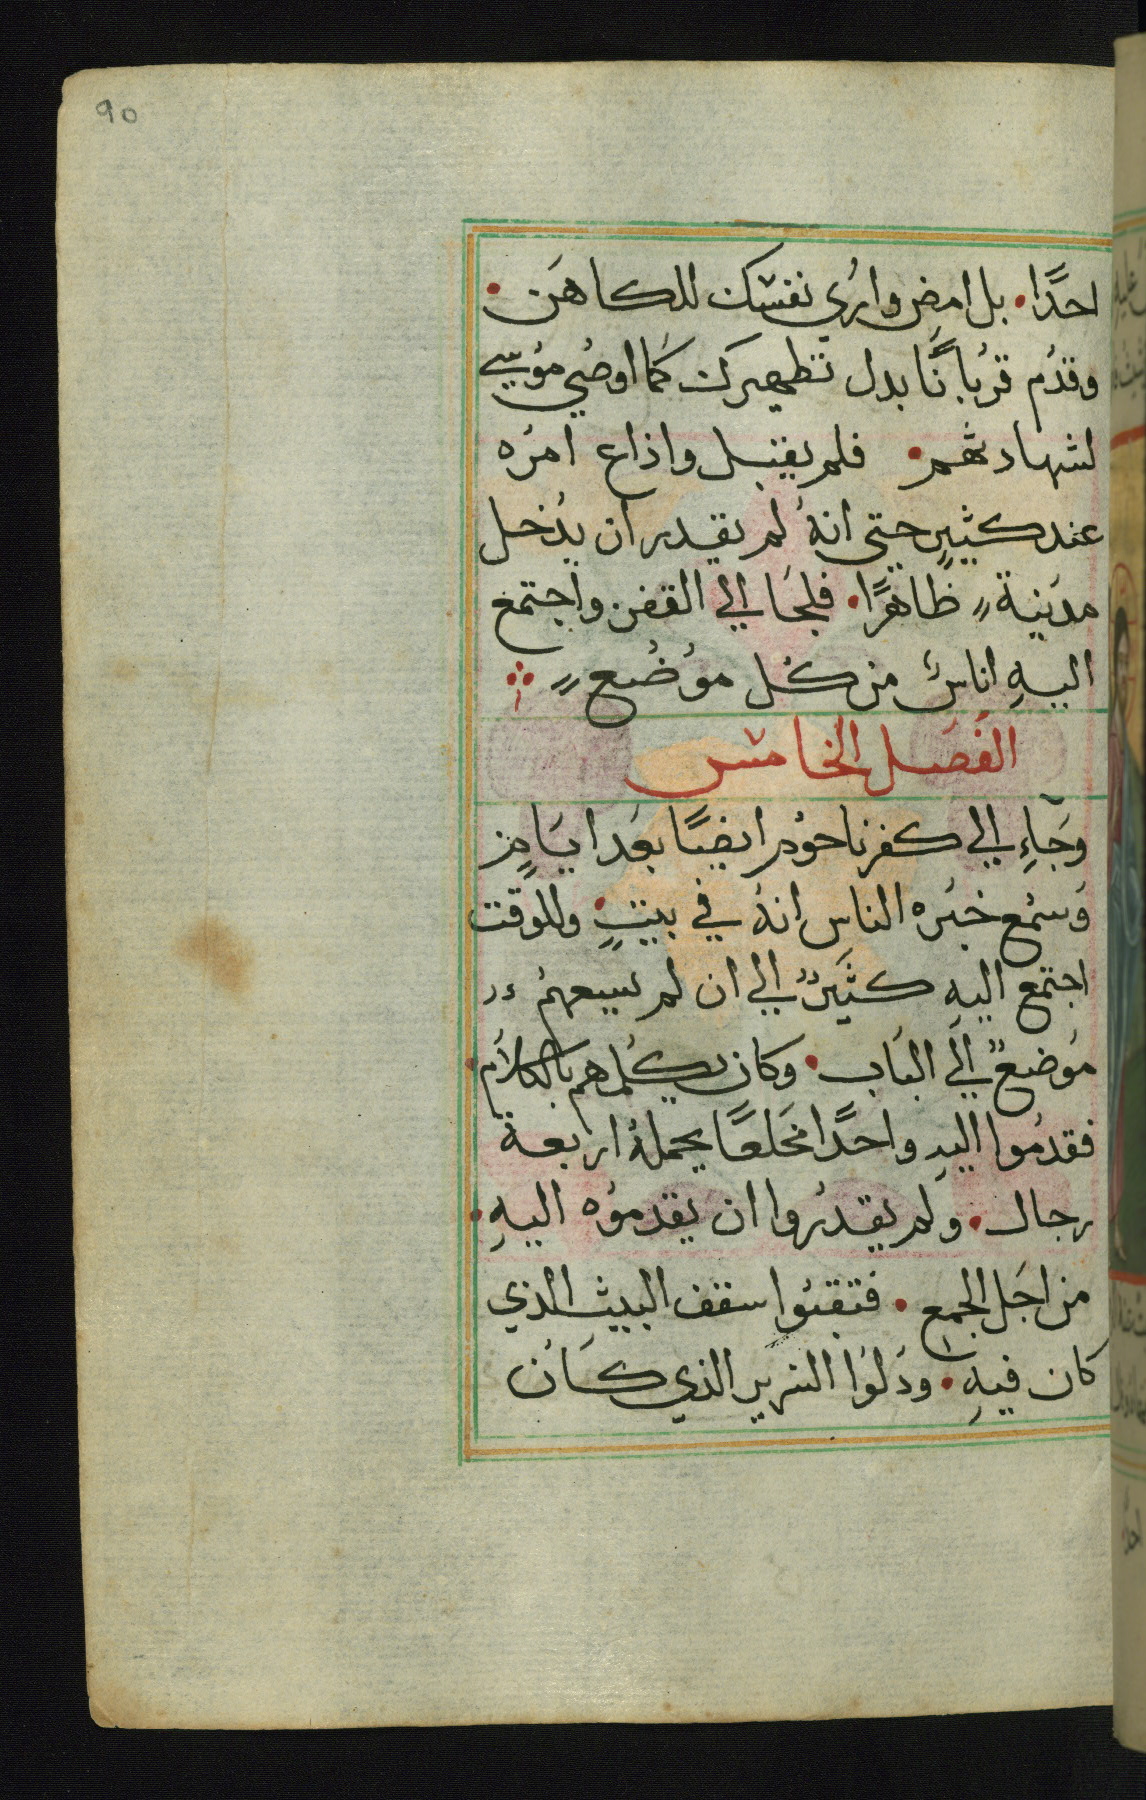 90
احدًا. بل امض واري نفسك للكاهن.
وقدم قربانًا بدل تطهيرك كما اوصي موسي
لشهادتهم. فلم يقبل واذاع امره
عند كثيرٍ حتي انه لم يقدر ان يدخل
مدينة ظاهرًا. فلجا الي القفر واجتمع
اليهِ اناسٌ من كل موضع
الفصل الخامس
وجاءِ الي كفرناحوم ايضًا بعد ايامٍ
وسمع خبره الناس انه في بيتٍ. وللوقت
اجتمع اليهِ كثيرٌ الي ان لم يسعهم
موضعٌ الي الباب. وكان يكلمهم بالكلام.
فقدموا اليهِ واحدًا مخلعًا يحمله اربعة
رجال. ولم يقدروا ان يقدموه اليهِ.
من اجل الجمع. فتقبوا سقف البيت الذي
كان فيهِ. ودلوا السرير الذي كان